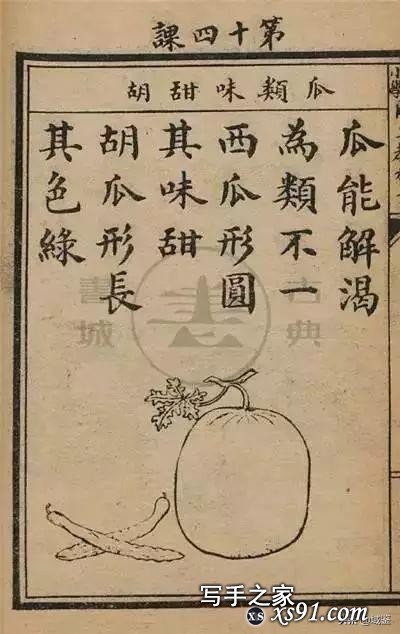 第十四課
瓜類味甜胡
瓜能解渴
為類不一
西瓜形圓
其味甜
胡瓜形長
其色綠
古典
書城
写手之家
xs xs91.com